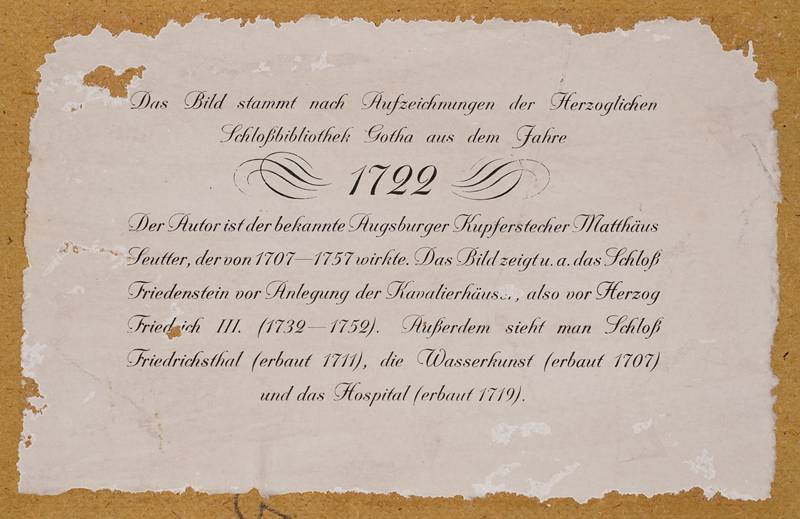 Das Bild stammt nach Aufzeichnungen der Herzoglichen
Schloßbibliothek Gotha aus dem Jahre
1722
Der Autor ist der bekannte Augsburger Kupferstecher Matthäus
Seutter, der von 1707—1757 wirkte. Das Bild zeigt u. a. das Schloß
Friedenstein vor Anlegung der Kavalierhäuser, also vor Herzog
Friedrich III. (1732—1752). Außerdem sieht man Schloß
Friedrichsthal (erbaut 1711), die Wasserkunst (erbaut 1707)
und das Hospital (erbaut 1719).